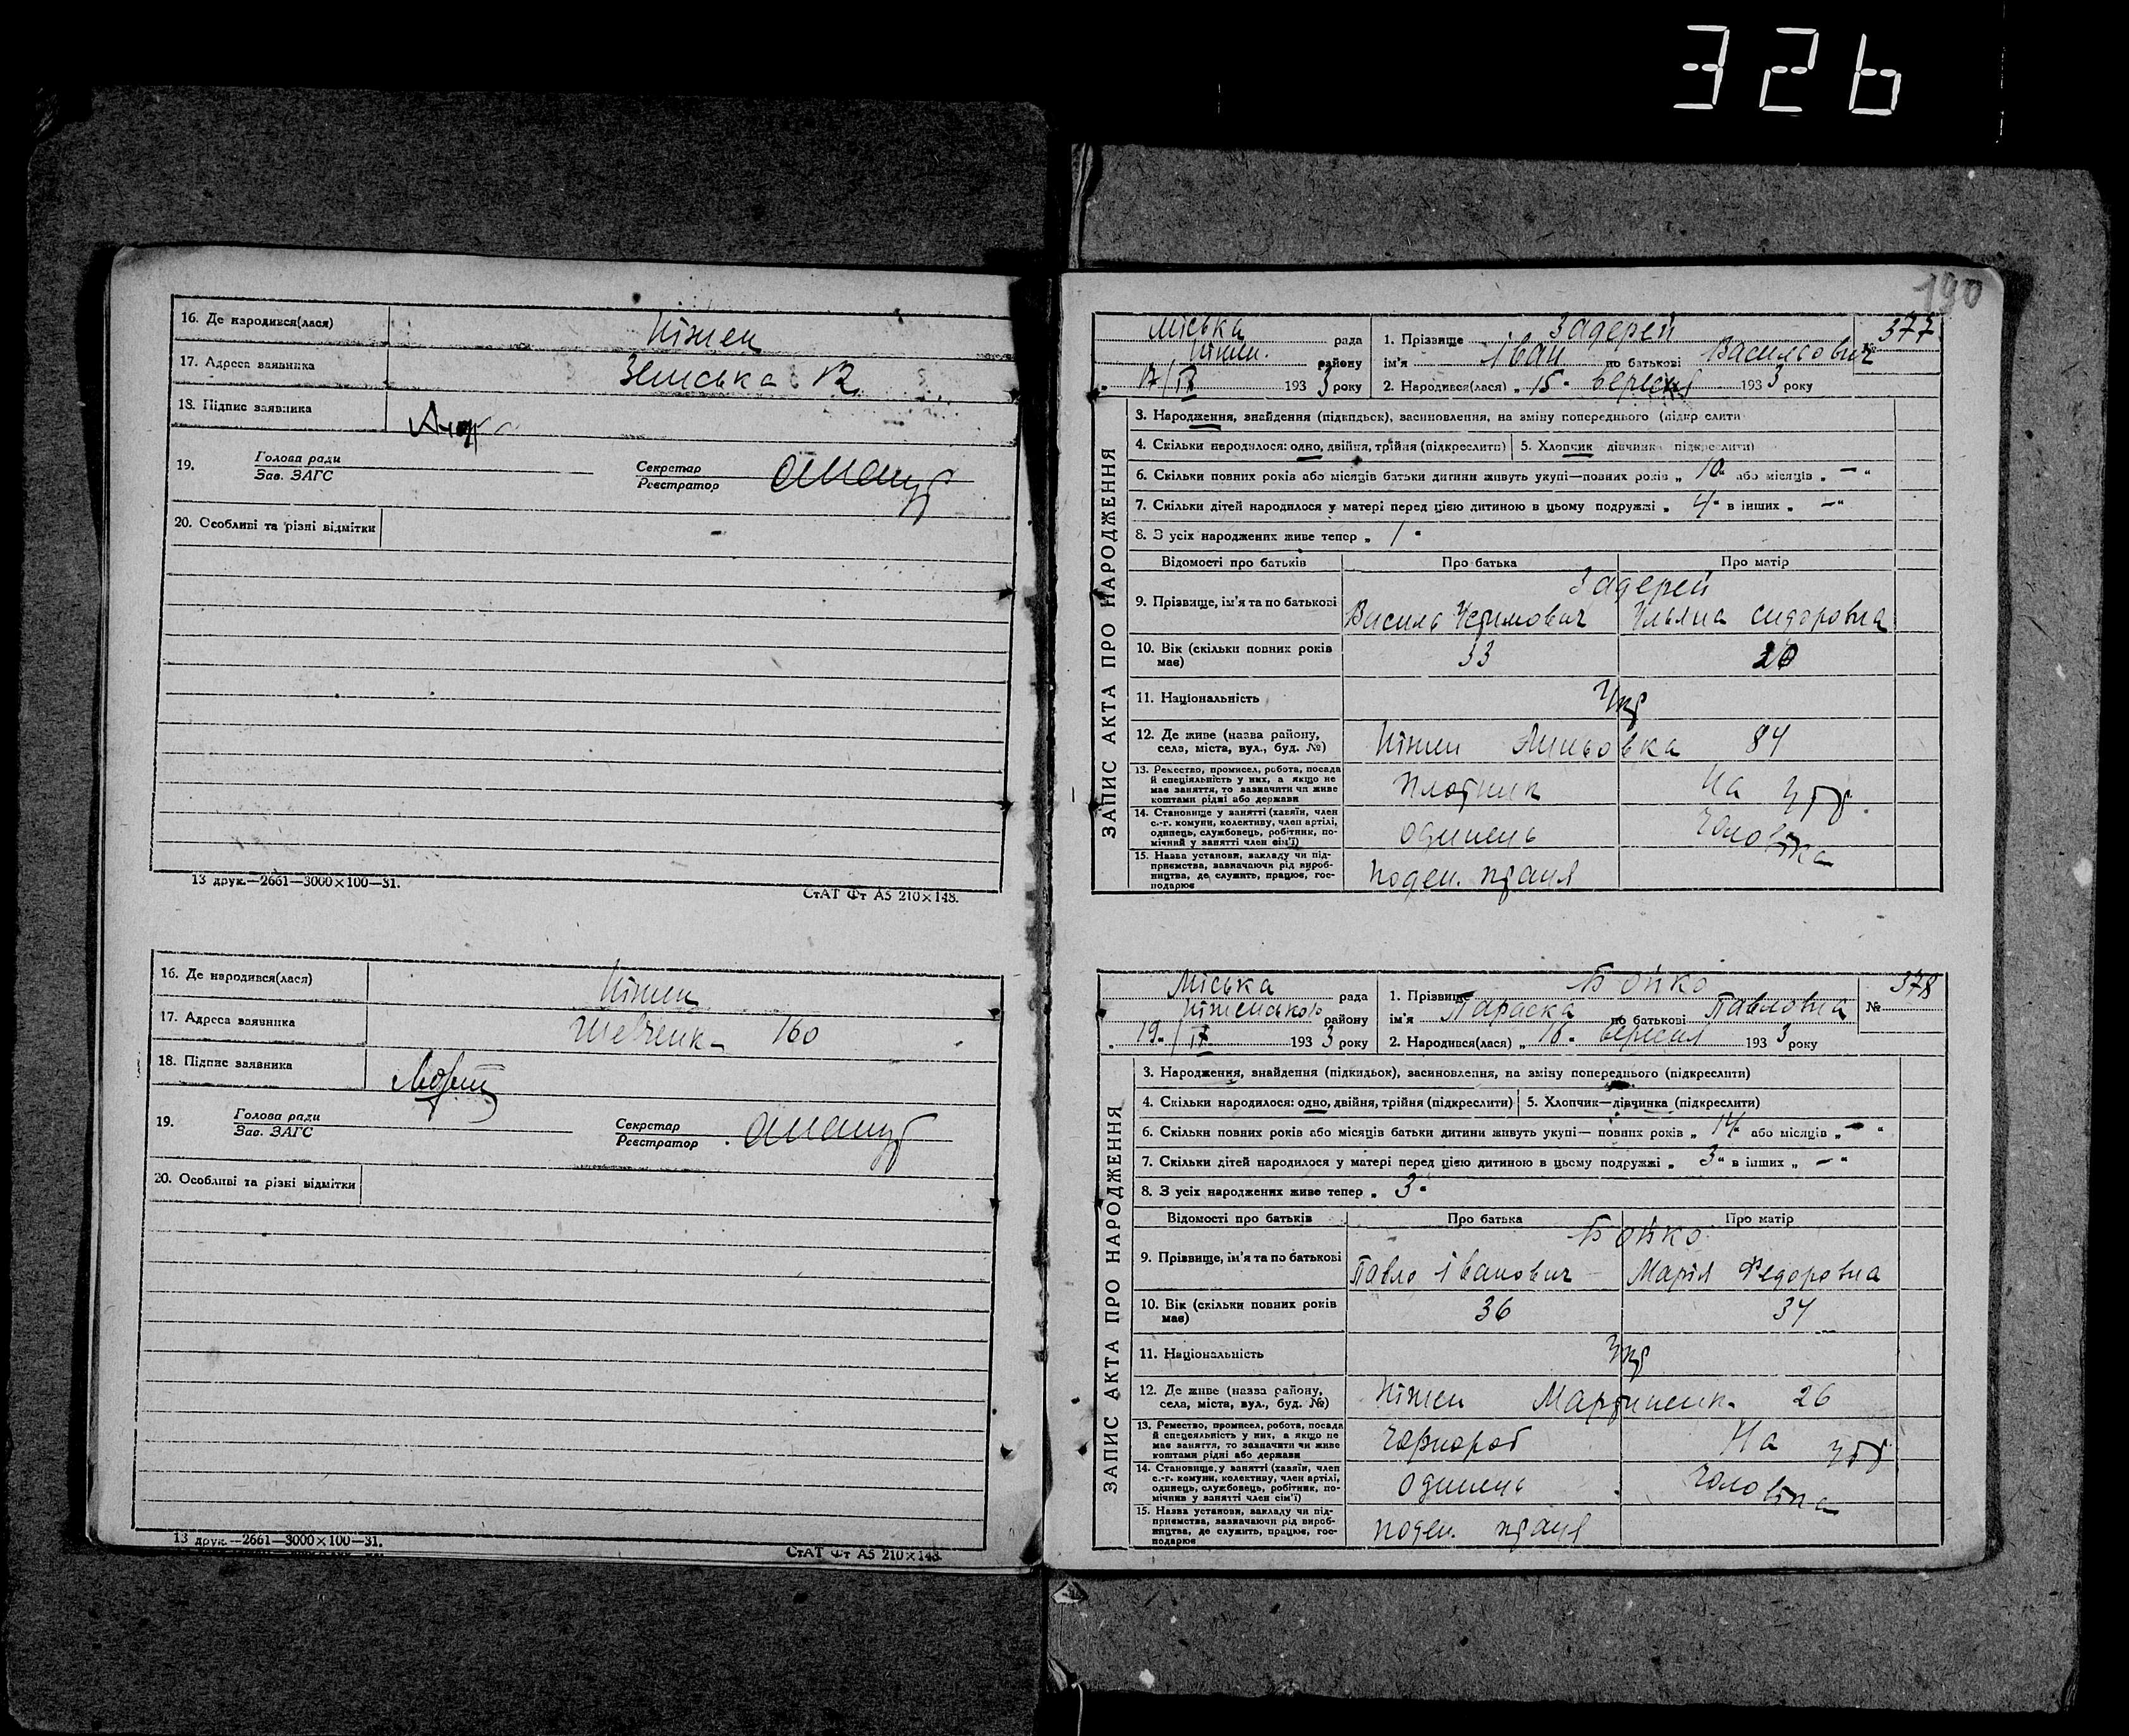 326
16. Де народився(лася) Ніжен
17. Адреса заявника Земська 12
18. Підпис заявника
19. Голова ради
Зав. ЗАГС
Секретар
Реєстратор
20. Особливі та різні відмітки
13 друк.—2661—3000×100—31. СтАТ Фт А5 210×148.
16. Де народився(лася) Ніжен
17. Адреса заявника Шевченк- 160
18. Підпис заявника
19. Голова ради
Зав. ЗАГС
Секретар
Реєстратор
20. Особливі та різні відмітки
13 друк.—2661—3000×100—31. СтАТ Фт А5 210×148.
190
ЗАПИС АКТА ПРО НАРОДЖЕННЯ
Міська рада
Ніжен. району
17/IX 1933 року
1. Прізвище Задерей № 377
ім'я Іван по батькові Васильович
2. Народився(лася) „ 15 " вересня 1933 року
3. Народження, знайдення (підкидьок), засиновлення, на зміну попереднього (підкреслити)
4. Скільки народилося: одно, двійня, трійня (підкреслити) 5. Хлопчик дівчинка підкреслити)
6. Скільки повних років або місяців батьки дитини живуть укупі—повних років „ 10 " або місяців „ — "
7. Скільки дітей народилося у матері перед цією дитиною в цьому подружжі „ 4 " в інших „ — "
8. З усіх народжених живе тепер „ 1 "
Відомості про батьків Про батька Про матір
Задерей
9. Прізвище, ім'я та по батькові Василь Устимович Ульяна Сидоровна
10. Вік (скільки повних років має) 33 20
11. Національність Укр
12. Де живе (назва району, села, міста, вул., буд. №) Ніжен 84
13. Ремество, промисел, робота, посада
й спеціяльність у них, а якщо не
має заняття, то зазначити чи живе
коштами рідні або держави
Плотник На утр.
14. Становище у занятті (хазяїн, член
с.-г. комуни, колективу, член артілі,
одинець, службовець, робітник, по-
мічний у занятті член сім'ї)
одинець чоловіка
15. Назва установи, закладу чи під-
приємства, зазначаючи рід вироб-
ництва, де служить, працює, гос-
подарює
поден. праця
ЗАПИС АКТА ПРО НАРОДЖЕННЯ
Міська рада
Ніженського району
„ 19 " / IX 1933 року
1. Прізвище Бойко № 378
ім'я Параска по батькові Павловна
2. Народився(лася) „ 18 " вересня 1933 року
3. Народження, знайдення (підкидьок), засиновлення, на зміну попереднього (підкреслити)
4. Скільки народилося: одно, двійня, трійня (підкреслити) 5. Хлопчик—дівчинка (підкреслити)
6. Скільки повних років або місяців батьки дитини живуть укупі— повних років „ 14 " або місяців „ — "
7. Скільки дітей народилося у матері перед цією дитиною в цьому подружжі „ 3 " в інших „ — "
8. З усіх народжених живе тепер „ 3 "
Відомості про батьків Про батька Про матір
Бойко
9. Прізвище, ім'я та по батькові Павло Іванович Марія Федоровна
10. Вік (скільки повних років має) 36 34
11. Національність Укр
12. Де живе (назва району, села, міста, вул., буд. №) Ніжен Мартиненк. 26
13. Ремество, промисел, робота, посада
й спеціяльність у них, а якщо не
має заняття, то зазначити чи живе
коштами рідні або держави
Чорнороб На утр
14. Становище у занятті (хазяїн, член
с.-г. комуни, колективу, член артілі,
одинець, службовець, робітник, по-
мічник у занятті член сім'ї)
одинець чоловіка
15. Назва установи, закладу чи під-
приємства, зазначаючи рід вироб-
ництва, де служить, працює, гос-
подарює
поден. праця